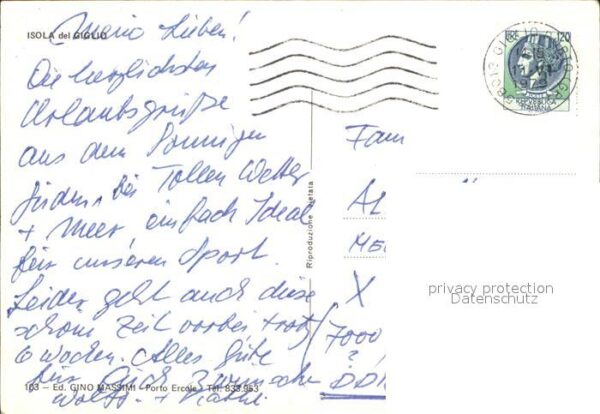 ISOLA del GIGLIO
Meine Lieben!
Die herzlichsten
Urlaubsgrüße
aus dem Sonnigen
Süden, bei Tollen Wetter
+ Meer einfach Ideal
für unseren Sport.
Leider geht auch diese
schöne Zeit vorbei trotz
6 Wochen. Alles Gute
103 — Ed. GINO MASSIMI - Porto Ercole - Tel. 833.963
Riproduzione vietata
LIRE 120
REPVBBLICA
ITALIANA
58013 GIGLIO
Fam
AL
ME
X
(7000
DD
privacy protection
Datenschutz